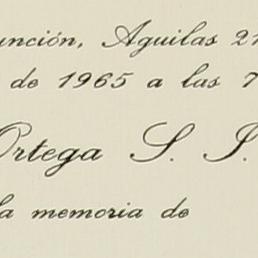 unción, Aguilas 21
de 1965 a las 7
Ortega S. I.
la memoria de